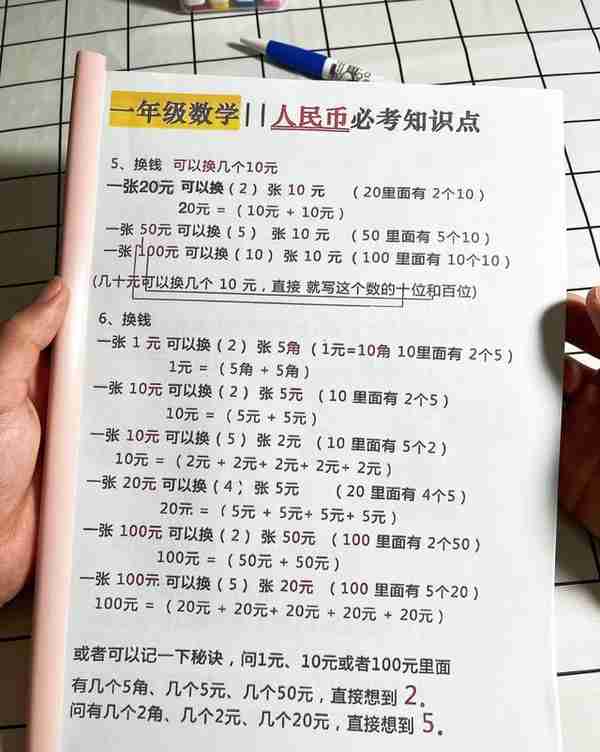 一年级数学||人民币必考知识点
5、换钱 可以换几个10元
一张20元 可以换（2）张 10 元 （20里面有 2个10）
20元 =（10元 + 10元）
一张 50元 可以换（5） 张 10 元 （50 里面有 5个10）
一张 100元 可以换（10）张 10 元（100 里面有 10个10）
(几十元可以换几个 10 元，直接 就写这个数的十位和百位)
6、换钱
一张 1 元 可以换（2）张 5角（1元=10角 10里面有 2个5）
1元 =（5角 + 5角）
一张 10元 可以换（2）张 5元 （10 里面有 2个5）
10元 =（5元 + 5元）
一张 10元 可以换（5）张 2元 （10 里面有 5个2）
10元 =（2元 + 2元+ 2元+ 2元+ 2元）
一张 20元 可以换（4）张 5元 （20 里面有 4个5）
20元 =（5元 + 5元+ 5元+ 5元）
一张 100元 可以换（2）张 50元（100 里面有 2个50）
100元 =（50元 + 50元）
一张 100元 可以换（5）张 20元 （100 里面有 5个20）
100元 =（20元 + 20元+ 20元 + 20元 + 20元）
或者可以记一下秘诀，问1元、10元或者100元里面
有几个5角、几个5元、几个50元，直接想到 2。
问有几个2角、几个2元、几个20元，直接想到 5。